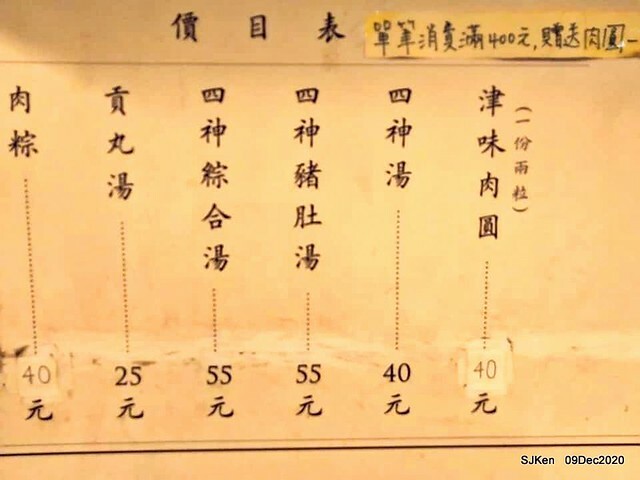 價目表
單筆消費滿400元,贈送肉圓一
津味肉圓
(一份兩粒)
40元
四神湯
40元
四神豬肚湯
55元
四神綜合湯
55元
貢丸湯
25元
肉粽
40元
SJKen 09Dec2020